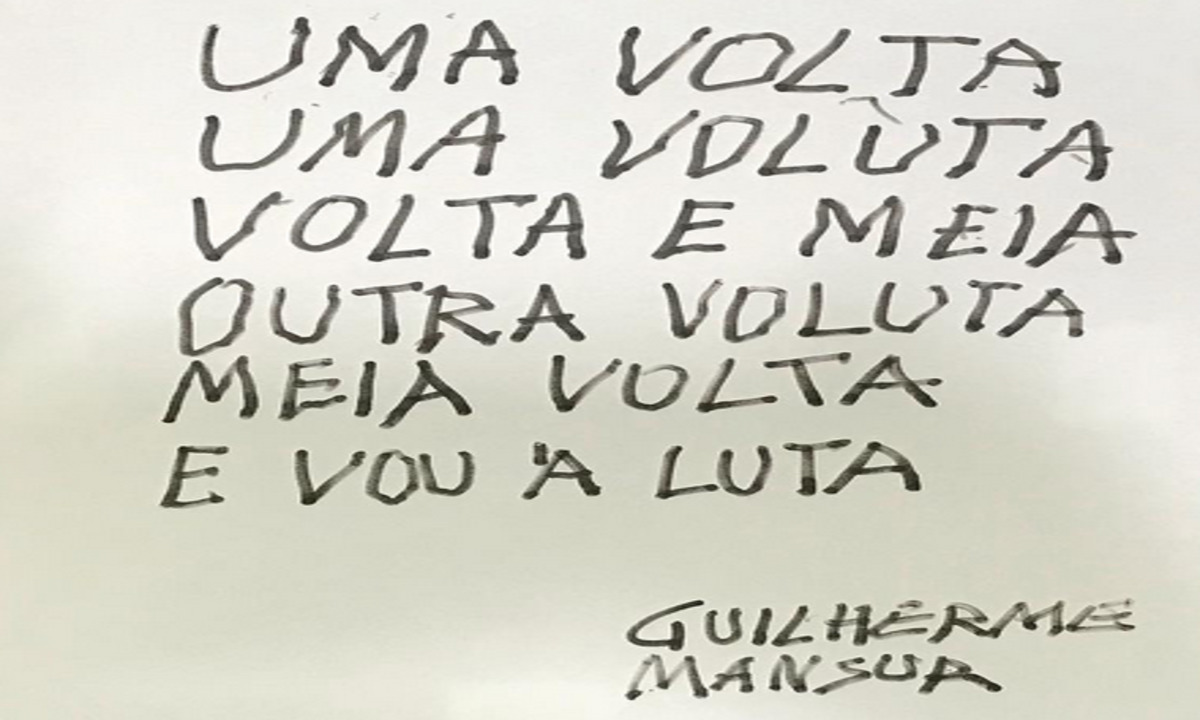 UMA VOLTA
UMA VOLUTA
VOLTA E MEIA
OUTRA VOLUTA
MEIA VOLTA
E VOU À LUTA
GUILHERME
MANSUR